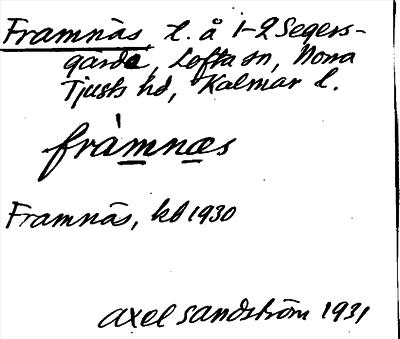 Framnäs, t. å 1-2 Segers-
gärde, Lofta sn, Norra
Tjusts hd, Kalmar l.
fràmnæs
Framnäs, kb 1930
Axel Sandström 1931